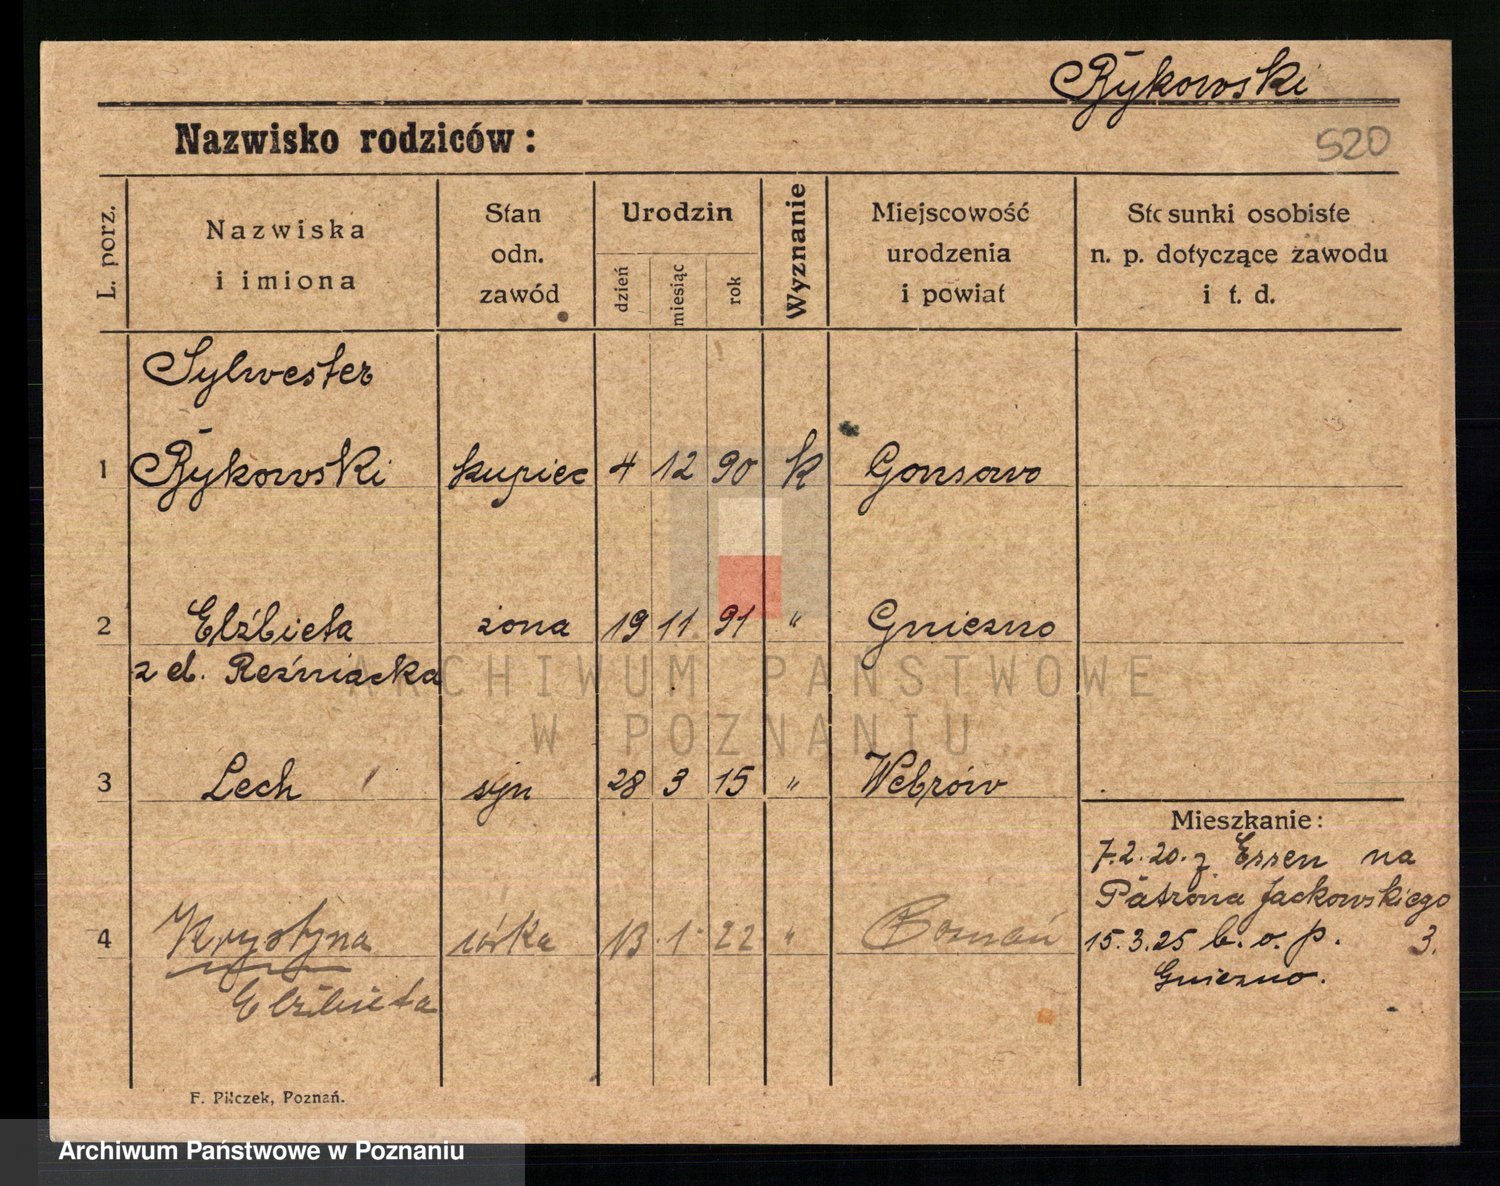 Rykowski
Nazwisko rodziców:
520
L. porz.
Nazwiska
i imiona
Stan
odn.
zawód
Urodzin
dzień
miesiąc
rok
Wyznanie
Miejscowość
urodzenia
i powiat
Stosunki osobiste
n. p. dotyczące zawodu
i t. d.
Sylwester
1 Rykowski kupiec 4 12 90 k Gonsawo
2 Elżbieta żona 19 11 91 " Gniezno
z d. Reźniacka
3 Lech syn 28 3 15 " Webrów
Mieszkanie:
7.2.20. z Essen na
Patrona Jackowskiego
4 Krystyna córka 13 1 22 " Poznań 15.3.25 b. o. p. 3.
Elżbieta
Gniezno.
F. Pilczek, Poznań.
ARCHIWUM PAŃSTWOWE
W POZNANIU
Archiwum Państwowe w Poznaniu